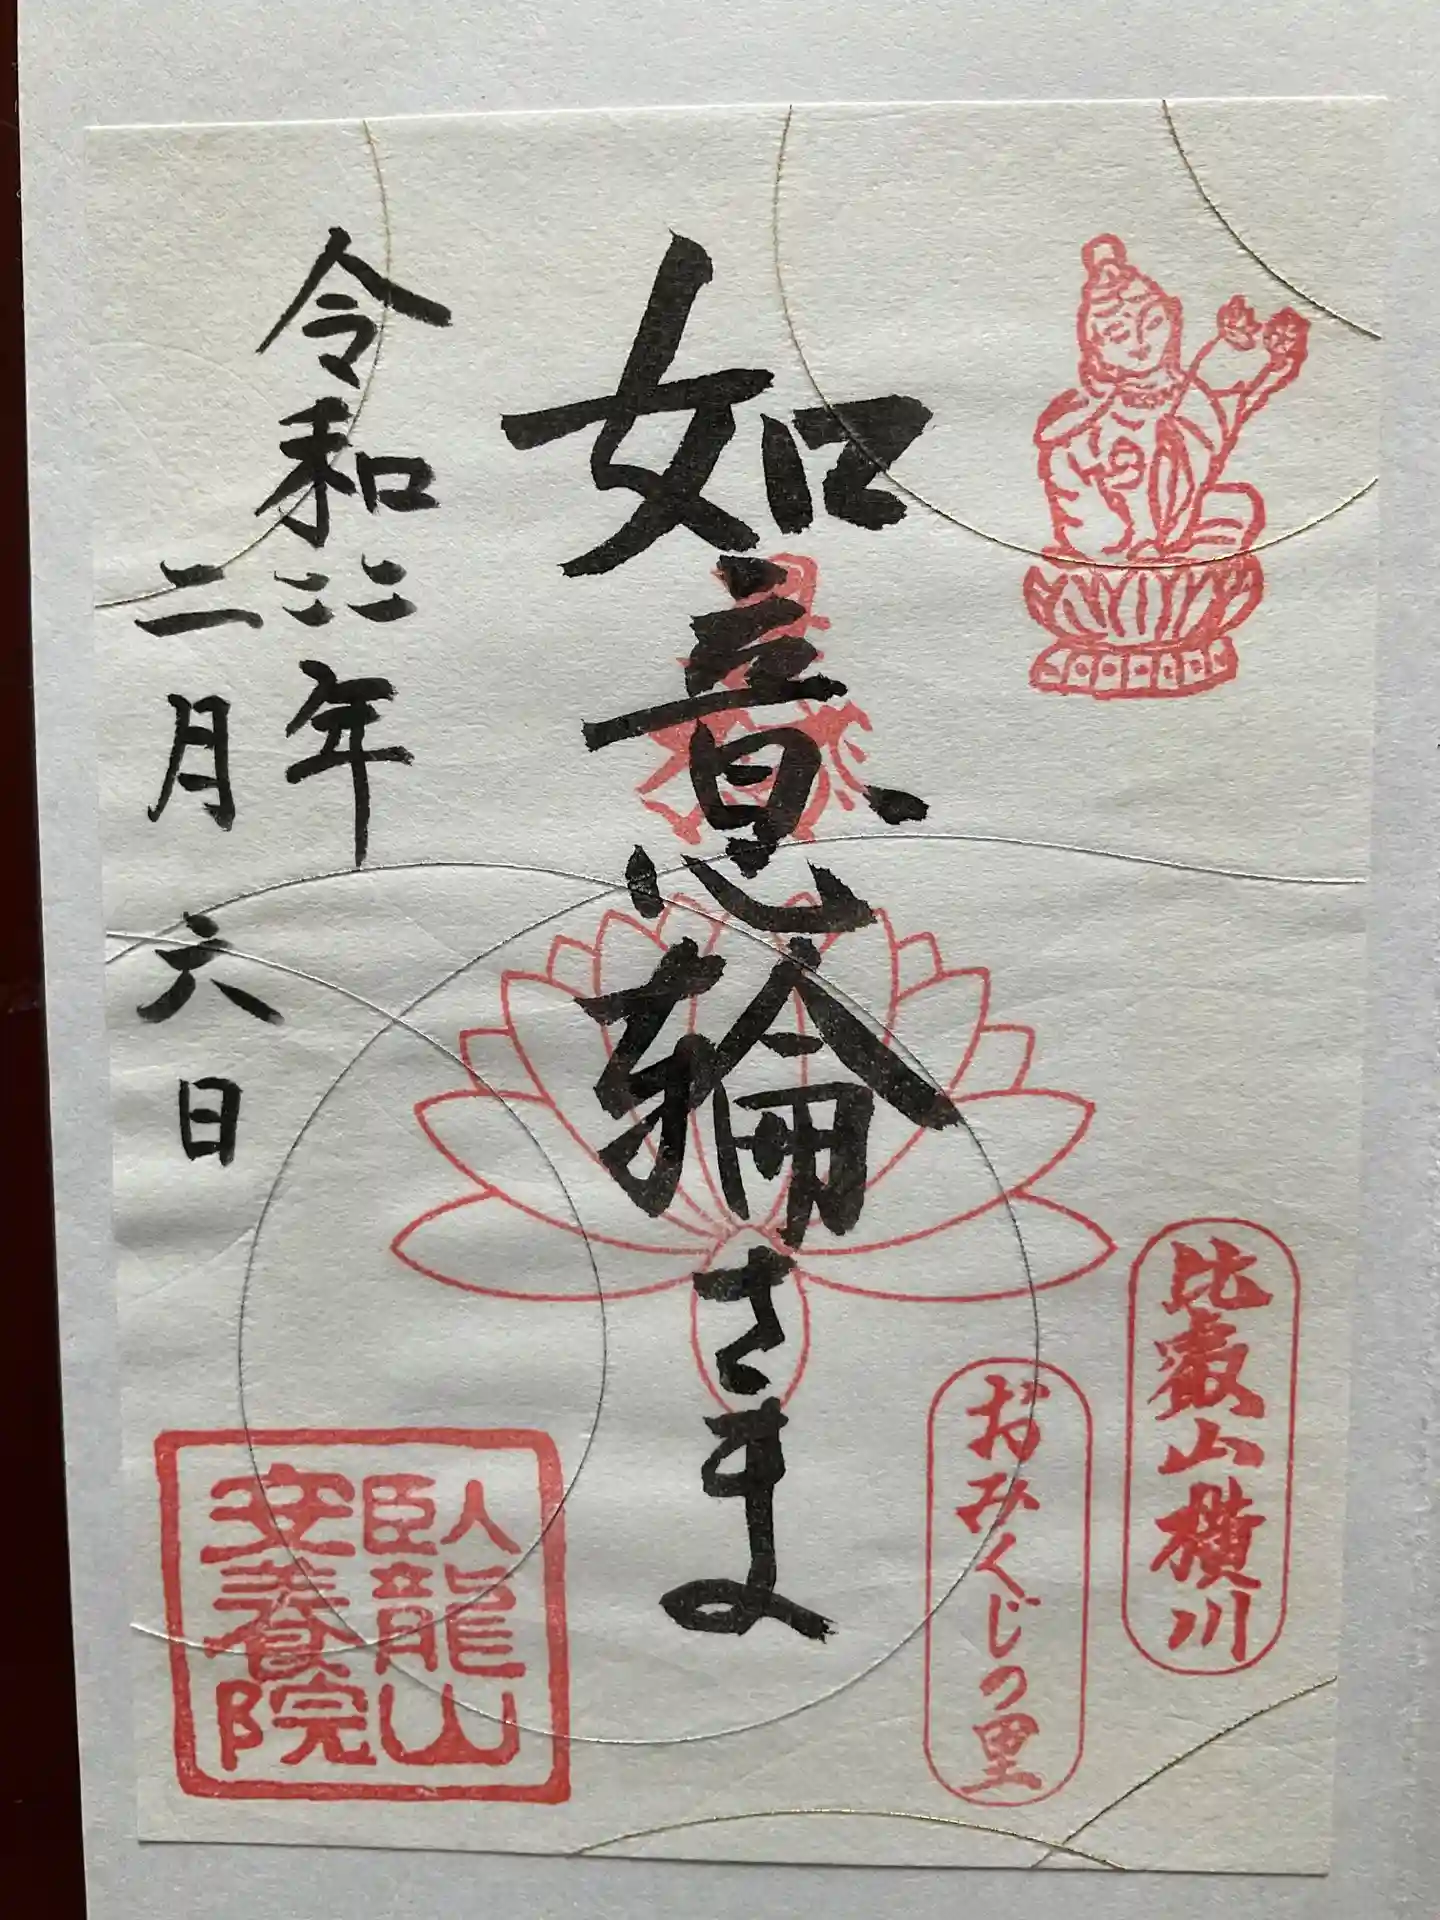 比叡山横川
おみくじの里
如意輪さま
令和二二年
二月六日
臥龍山
安養院